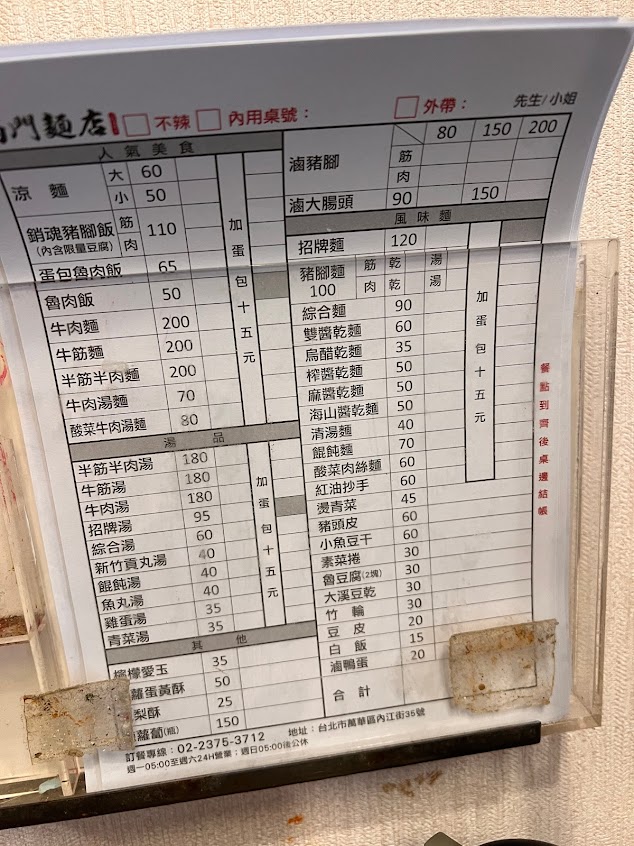 門麵店 □不辣 □內用桌號： □外帶： 先生/小姐
人氣美食
涼麵 大 60
小 50
銷魂豬腳飯 筋 肉 110
(內含限量豆腐)
蛋包魯肉飯 65
魯肉飯 50
牛肉麵 200
牛筋麵 200
半筋半肉麵 200
牛肉湯麵 70
酸菜牛肉湯麵 80
加蛋包十五元
湯品
半筋半肉湯 180
牛筋湯 180
牛肉湯 180
招牌湯 95
綜合湯 60
新竹貢丸湯 40
餛飩湯 40
魚丸湯 40
雞蛋湯 35
青菜湯 35
加蛋包十五元
其他
檸檬愛玉 35
蘿蛋黃酥 50
梨酥 25
蘿蔔(瓶) 150
80 150 200
滷豬腳 筋
肉
滷大腸頭 90 150
風味麵
招牌麵 120
豬腳麵 筋 乾 湯
100 肉 乾 湯
綜合麵 90
雙醬乾麵 60
烏醋乾麵 35
榨醬乾麵 50
麻醬乾麵 50
海山醬乾麵 50
清湯麵 40
餛飩麵 70
酸菜肉絲麵 60
紅油抄手 60
燙青菜 45
豬頭皮 60
小魚豆干 60
素菜捲 30
魯豆腐(2塊) 30
大溪豆乾 30
竹輪 30
豆皮 20
白飯 15
滷鴨蛋 20
合計
加蛋包十五元
餐點到齊後桌邊結帳
訂餐專線：02-2375-3712 地址：台北市萬華區內江街35號
週一05:00至週六24H營業；週日05:00後公休